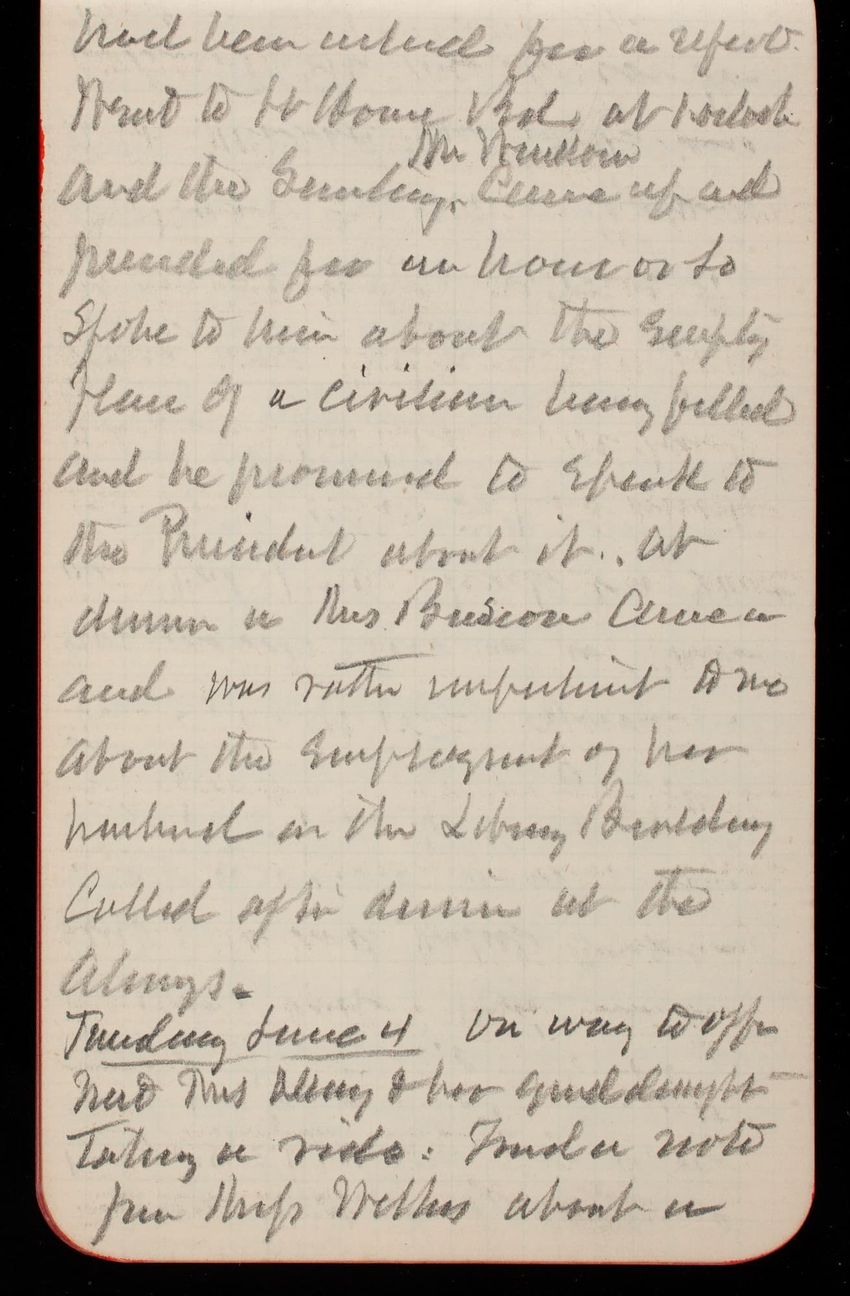 had been asked for a report.
Went to Lt House Bd. at 1 oclock
Mr Windom
and the Secretary, Came up and
presided for an hour or so
Spoke to him about the Empty
place of a civilian being filled
and he promised to Speak to
the President about it.. At
dinner a Mrs Came in
and was rather impertinent to me
about the Employment of her
husband on the Library Building
Called after dinner at the
Almys.
Tuesday June 4 on way to offi
met Mrs Almy & her granddaught
taking a ride: Found a note
from Miss about a